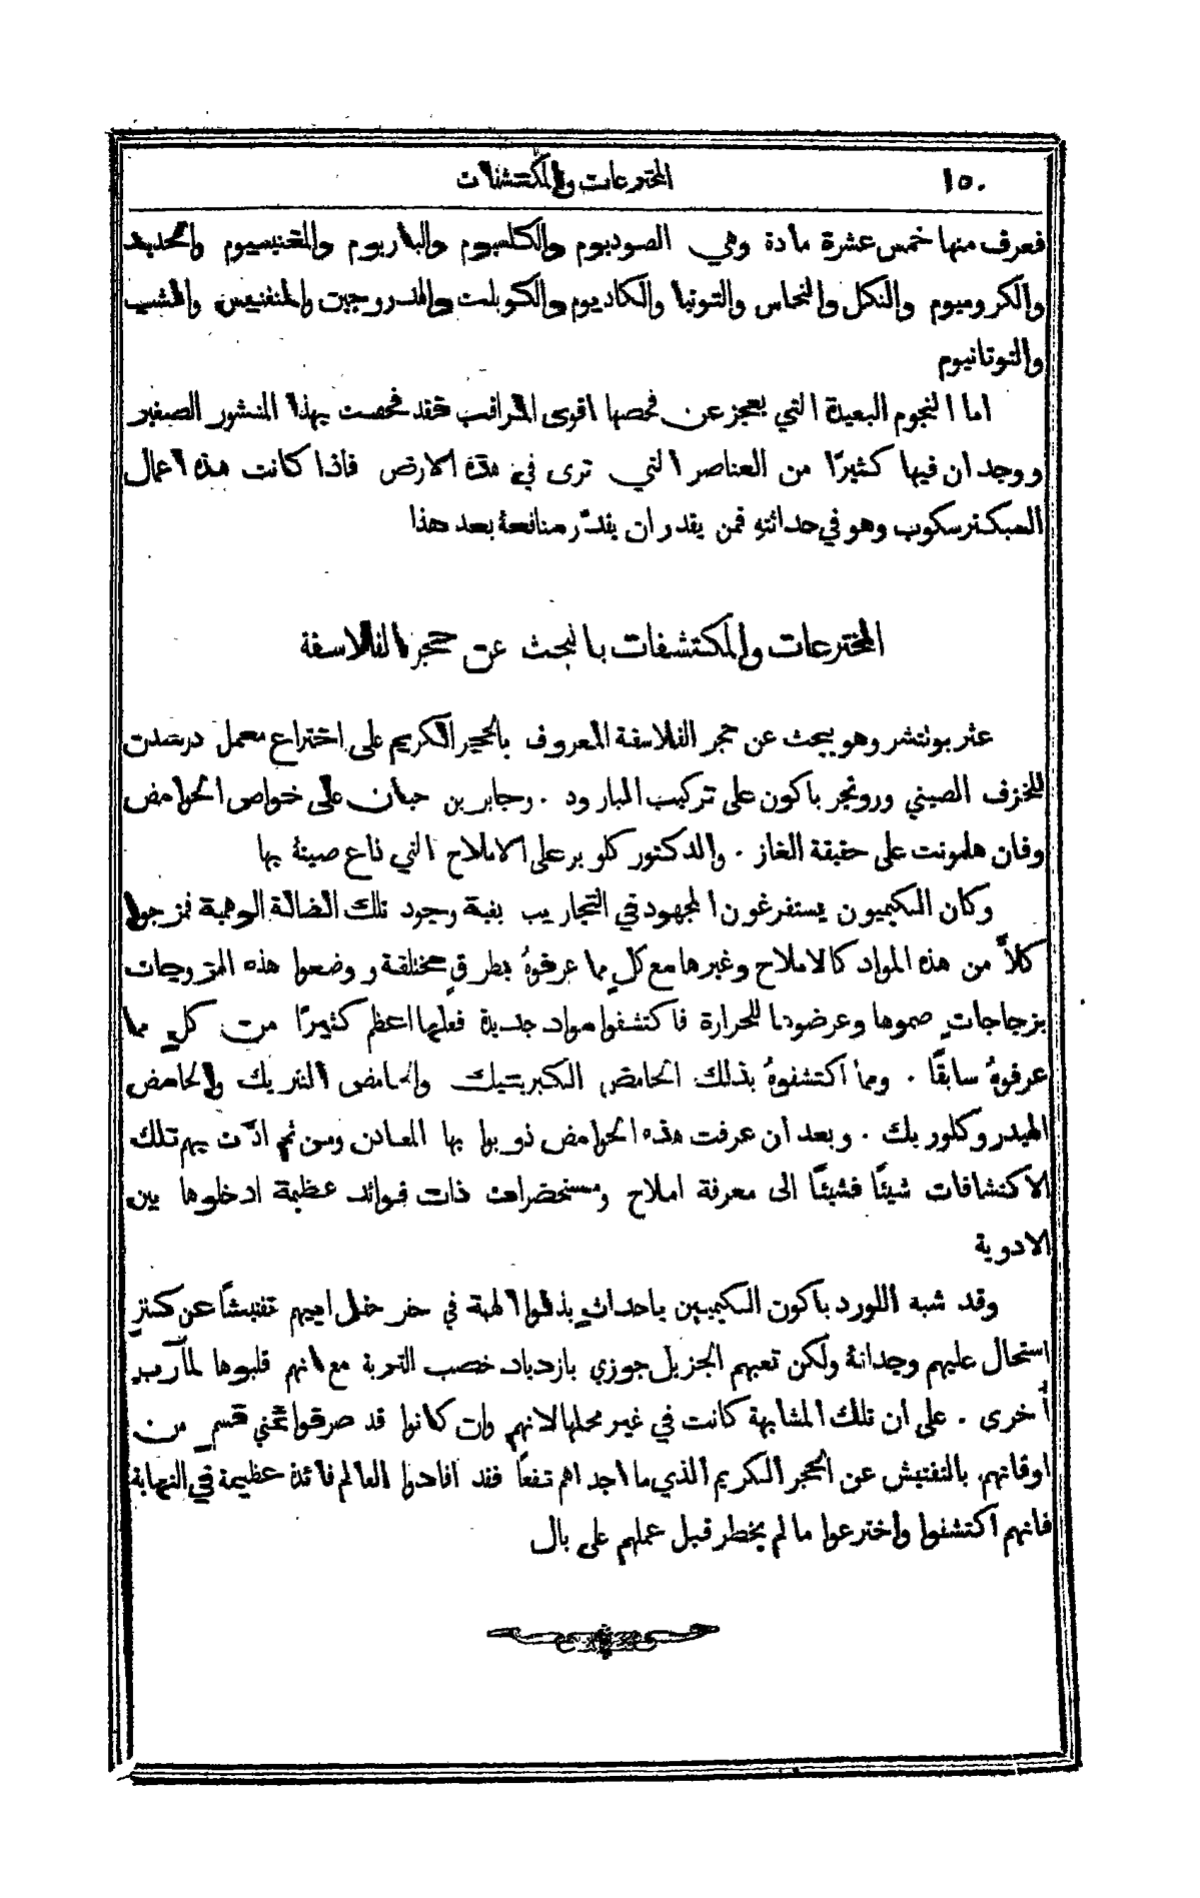 ١٥٠ المخترعات والمكتشفات
فعرف منها خمس عشرة مادة وهي الصوديوم والكلسيوم والباريوم والمغنيسيوم والحديد
والكروميوم والنكل والنحاس والتوتيا والكاديوم والكوبلت والهدروجين والمنغنيس والشب
والتوتانيوم
اما النجوم البعيدة التي يعجز عن فحصها اقوى المراقب فقد فحصت بهذا المنشور الصغير
ووجد ان فيها كثيرًا من العناصر التي ترى في هذه الارض فاذا كانت هذه اعمال
السبكترسكوب وهو في حداثتهِ فمن يقدر ان يقدّر منافعهُ بعد هذا
المخترعات والمكتشفات بالبحث عن حجر الفلاسفة
عثر بوتتشر وهو يبحث عن حجر الفلاسفة المعروف بالحجر الكريم على اختراع معمل درسدن
للخزف الصيني وروجر باكون على تركيب البارود . وجابر بن حيان على خواص الحوامض
وفان هلمونت على حقيقة الغاز . والدكتور كلوبر على الاملاح التي ذاع صيتهُ بها
وكان الكيميون يستفرغون المجهود في التجاريب بغية وجود تلك الضالة الوهمية فمزجوا
كلاًّ من هذه المواد كالاملاح وغيرها مع كلٍ مما عرفوهُ بطرقٍ مختلفة ووضعوا هذه المزوجات
بزجاجاتٍ صموها وعرضوها للحرارة فاكتشفوا مواد جديدة فعلها اعظم كثيرًا من كلٍ مما
عرفوهُ سابقًا . ومما اكتشفوهُ بذلك الحامض الكبريتيك والحامض النتريك والحامض
الهيدروكلوريك . وبعد ان عرفت هذه الحوامض ذوبوا بها المعادن ومن ثم ادّت بهم تلك
الاكتشافات شيئًا فشيئًا الى معرفة املاح ومستحضرات ذات فوائد عظيمة ادخلوها بين
الادوية
وقد شبه اللورد باكون الكيميين باحداثٍ بذلوا الهمة في حفر حقل ابيهم تفتيشًا عن كنزٍ
استحال عليهم وجدانهُ ولكن تعبهم الجزيل جوزي بازدياد خصب التربة مع انهم قلبوها لمآرب
أخرى . على ان تلك المشابهة كانت في غير محلها لانهم وان كانوا قد صرفوا قسم من
اوقاتهم بالتفتيش عن الحجر الكريم الذي ما اجداهم نفعًا فقد افادوا العالم فائدة عظيمة في النهاية
فانهم اكتشفوا واخترعوا ما لم يخطر قبل عملهم على بال